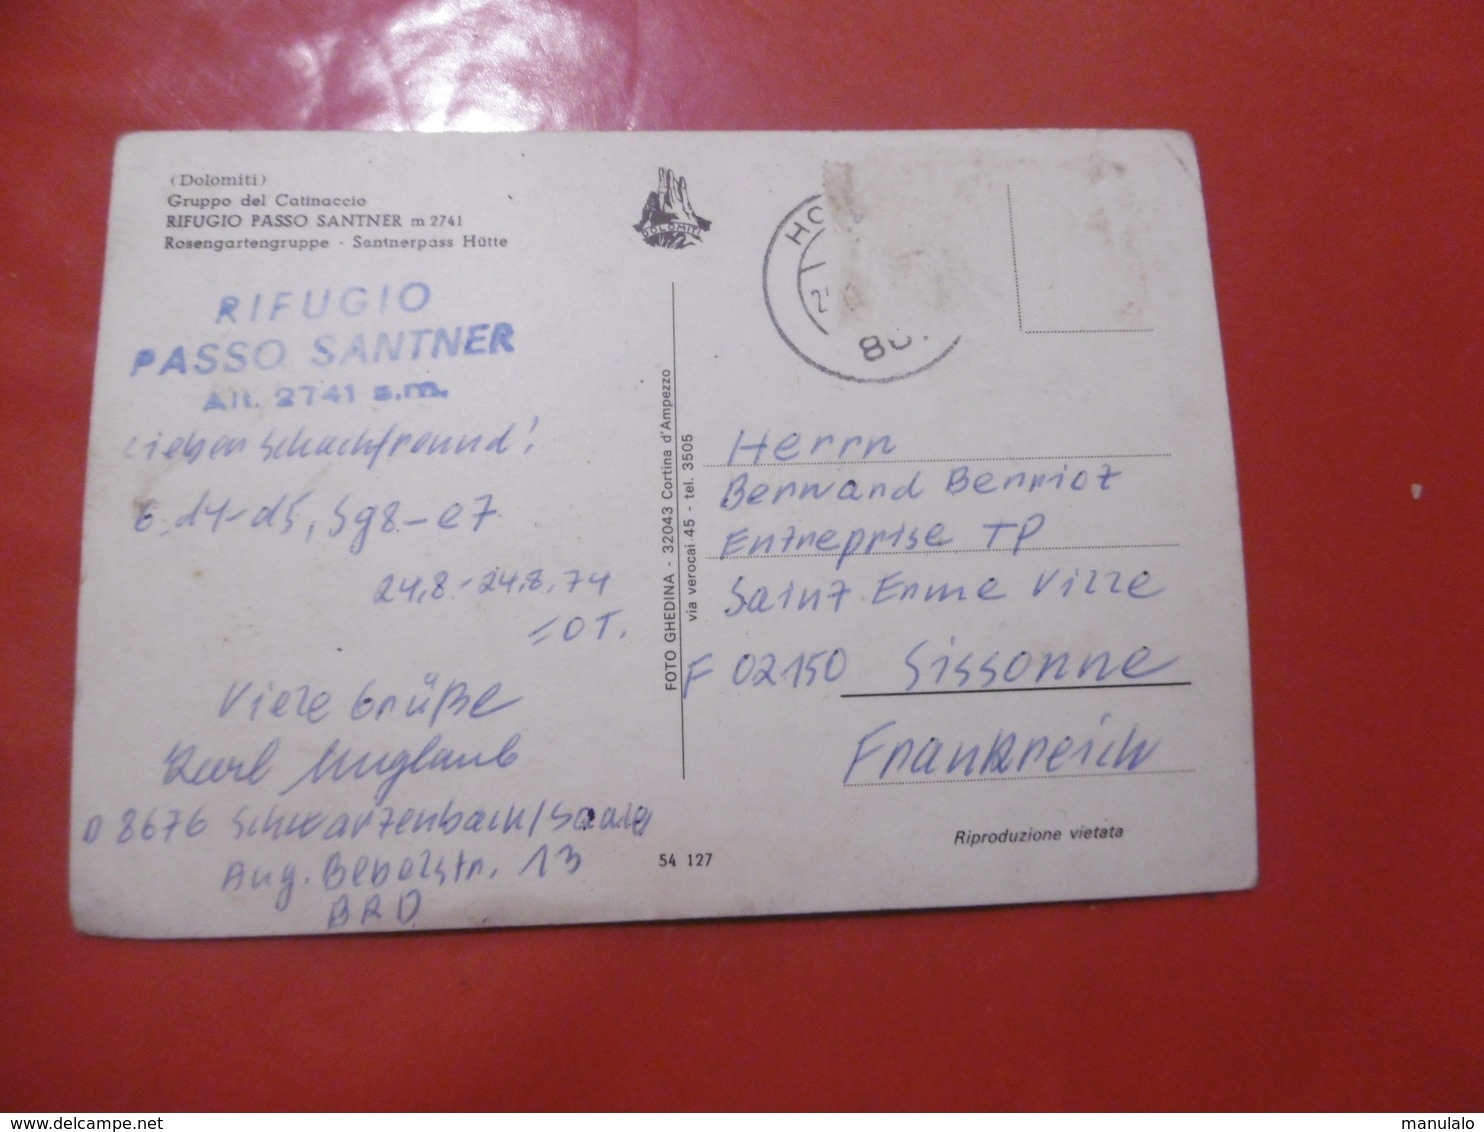 (Dolomiti)
Gruppo del Catinaccio
RIFUGIO PASSO SANTNER m 2741
Rosengartengruppe - Santnerpass Hütte
DOLOMITI
RIFUGIO
PASSO SANTNER
Alt. 2741 s.m.
Lieber Schachfreund!
6. d4-d5, Sg8-e7
24.8.-24.8.74
=0T.
Viele Grüße
Karl
D 8676 Schwarzenbach/Saale
Aug. Bebelstr. 13
BRD
FOTO GHEDINA - 32043 Cortina d'Ampezzo
via verocai 45 - tel. 3505
HO
Herrn
Bernard Berriot
Entreprise TP
Saint Erme Ville
F 02150 Sissonne
Frankreich
Riproduzione vietata
54 127
www.delcampe.net
manulalo